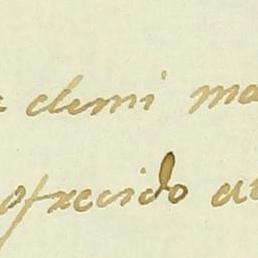 demi ma
ofrecido at